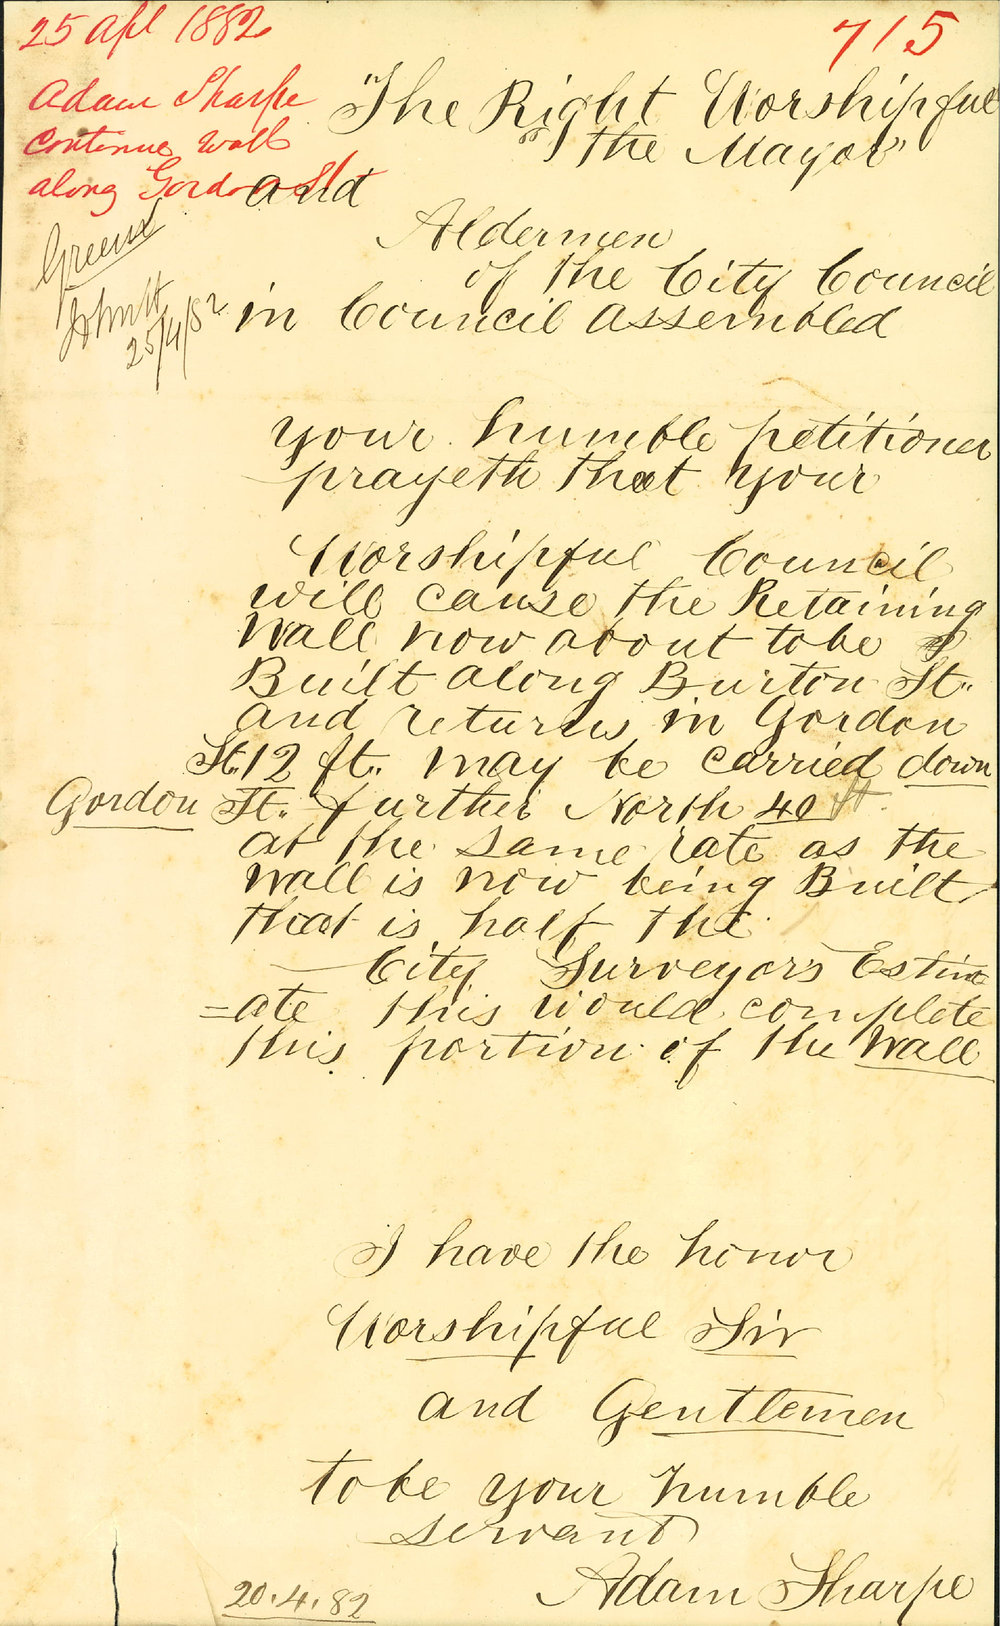 25 Apl 1882
715
Adam Sharpe
continue wall
along Gordon St
"The Right Worshipful
"the Mayor"
and
Aldermen
of the City Council
in Council assembled
25/4/82
your humble petitioner
prayeth that your
Worshipful Council
will cause the Retaining
Wall now about tobe
Built along Burton St.
and returns in Gordon
St. 12 ft. may be carried down
Gordon St. further North 40 ft.
at the same rate as the
Wall is now being Built
that is half the
City Surveyors Estim
=ate this would complete
this portion of the Wall
I have the honor
Worshipful Sir
and Gentlemen
tobe your humble
servant
Adam Sharpe
20.4.82